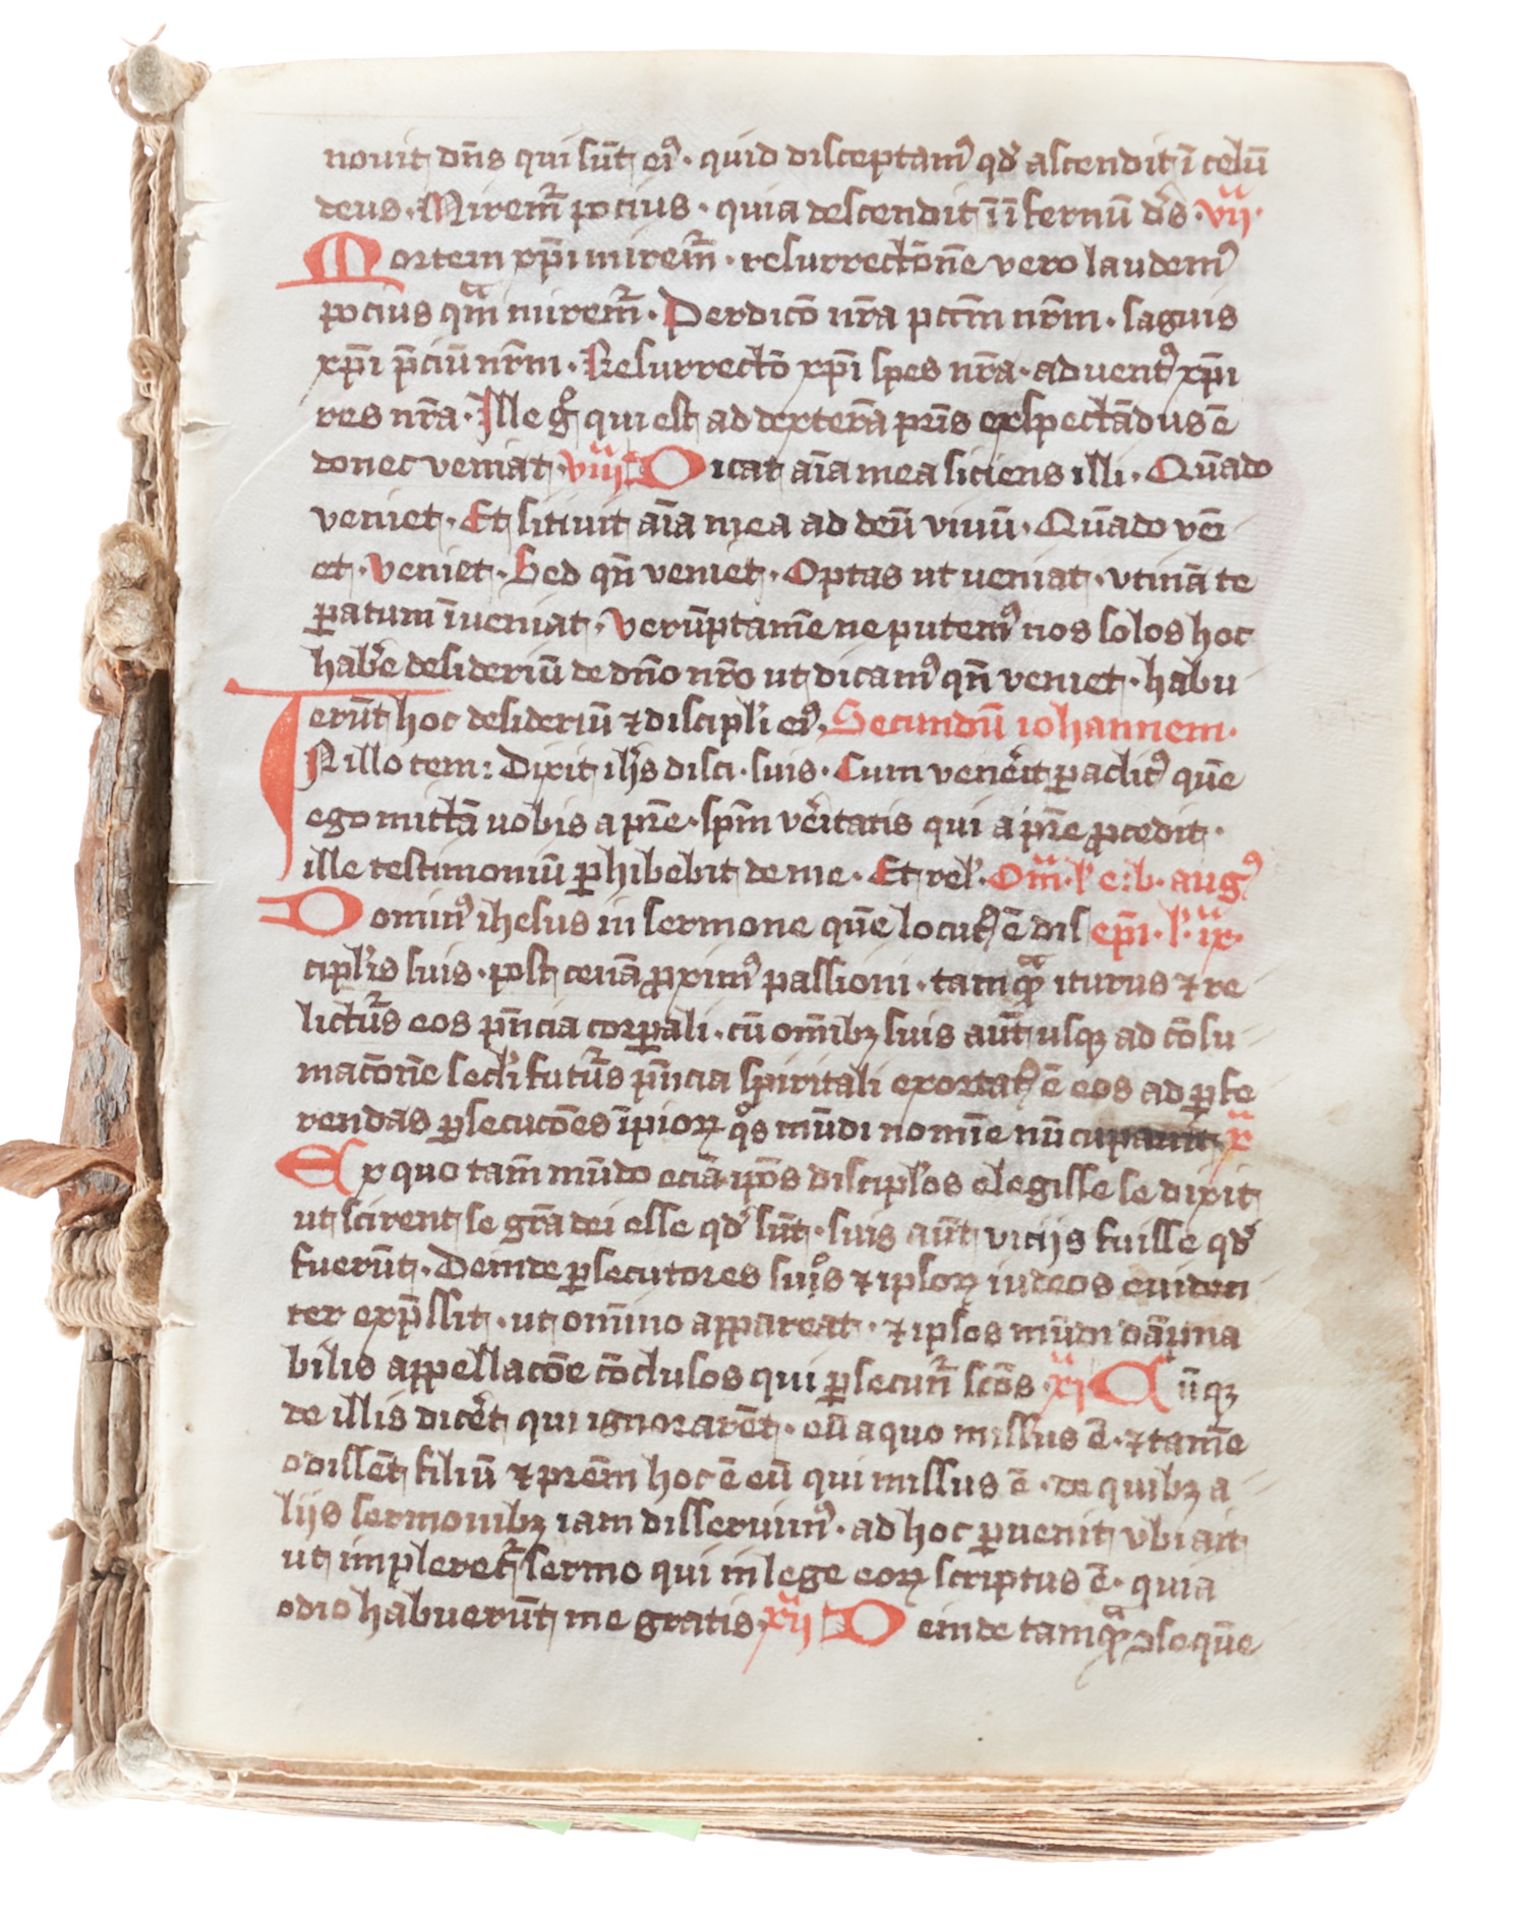 novit dn̄s qui sūt eiꝰ · quid disceptamꝰ qd' ascendit ī celū
deus · Miremr̄ pocius · quia descendit ī īfernū d's · vii ·
Mortem xp̄i miremr̄ · resurrectōne vero laudemꝰ
pocius qᵃm miremr̄ · Perdicō nr̄a pctm̄ nr̄m · saguis
xp̄i p̄ciū nr̄m · Resurrectō xp̄i spes nr̄a · aduentꝰ xp̄i
res nr̄a · Ille gͦ qui est ad dexterā pr̄is exspectādus ē
donec veniat · viii Dicat aīa mea siciens illi · Qūado
veniet · Et sitiuit aīa mea ad deū viuū · Qūado vēi
et · Veniet · Sed qn̄ veniet · Optas ut ueniat · vtinā te
ꝑatum īueniat · Verūptamē ne putemꝰ nos solos hoc
hab'e desideriū de dn̄o nr̄o ut dicamꝰ qn̄ veniet · habu
erūt hoc desideriū ⁊ discipl'i eiꝰ · Secundū iohannem ·
IN illo tem: Dixit ih̄s disci · suis · Cum ven'it ꝑaclitꝰ quē
ego mittā uobis a pr̄e · spm̄ v'itatis qui a pr̄e ꝓcedit ·
ille testimoniū ꝑhibebit de me · Et rel' · Om̄ · l' e: b · augꝰ
Dominꝰ ihesus in sermone quē locutꝰ ē dis ep̄i · l' · ix ·
cipl'is suis · post cenā ꝓximꝰ passioni · tamqᵃ iturus ⁊ re
lictur̄s eos p̄ncia corꝑali · cū om̄ibꝫ suis aūt usqꝫ ad cōsu
macōnē sec'li futur̄s p̄ncia spiritali exortatꝰ ē eos ad ꝑfe
rendas ꝑsecucōes īpioꝝ qͦs mūdi nomīe nūcupauit x
Ex quo tam̄ mūdo eciā ip̄os discipl'os elegisse se dixit
ut scirent se gr̄a dei esse qd' sūt · suis aūt vicijs fuisse qd'
fuerūt · Deinde ꝑsecutores suiͦs ⁊ ipsoꝝ iudeos euiden
ter exp̄ssit · ut om̄ino appareat · ⁊ ipsos mūdi dāpna
bilis appellacōe cōclusos qui ꝑsecunr̄ scōs · xi Cūqꝫ
de illis dic'et qui ignorarēt · eū a quo missus ē · ⁊ tamē
odissēt filiū ⁊ prēm hoc ē eū qui missus ē · de quibꝫ a
lijs sermonibꝫ iam disseruimꝰ · ad hoc ꝑuenit vbi ait
ut impleretr̄ sermo qui in lege eoꝝ scriptus ē · quia
odio habuerūt me gratis · xii Deinde tamqᵃ ꝯsequē